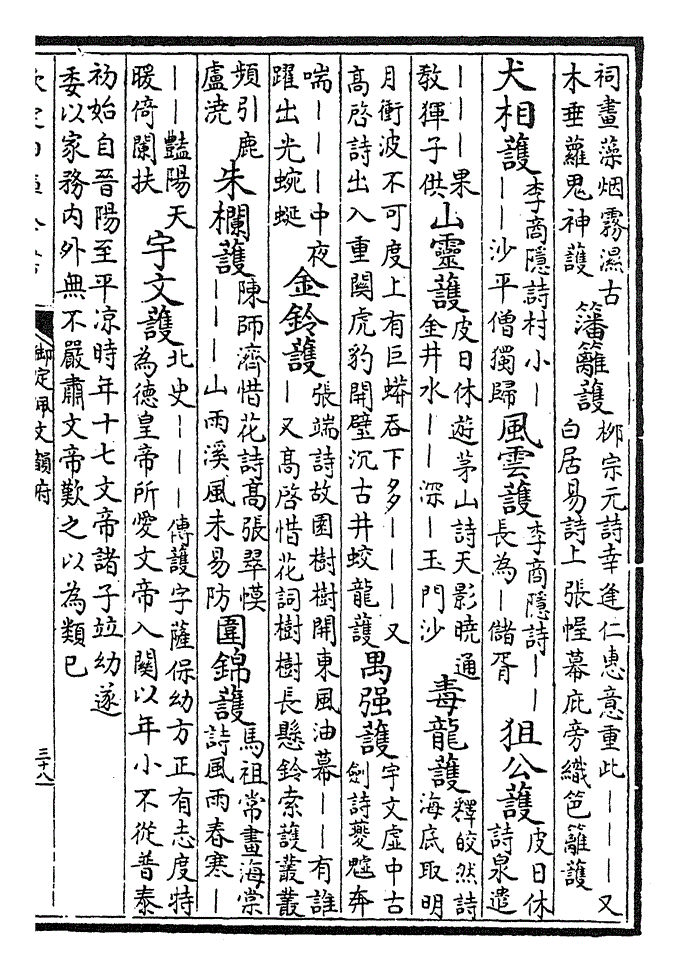 祠畫藻烟霧濕古
木垂蘿鬼神護
籓籬護
柳宗元詩幸逢仁惠意重此｜｜｜又
白居易詩上張幄幕庇旁織笆籬護
犬相護
李商隱詩村小｜
｜｜沙平僧獨歸
風雲護
李商隱詩｜｜
長為｜儲胥
狙公護
皮日休
詩泉遣
｜｜｜果
敎獋子供
山靈護
皮日休遊茅山詩天影曉通
金井水｜｜深｜玉門沙
毒龍護
釋皎然詩
海底取明
月衝波不可度上有巨蟒吞下多｜｜｜又
髙啓詩出入重關虎豹開璧沉古井蛟龍護
禺强護
宇文虛中古
劍詩夔魖奔
喘｜｜｜中夜
躍出光蜿蜒
金鈴護
張端詩故園樹樹開東風油幕｜｜｜有誰
｜又髙啓惜花詞樹樹長懸鈴索護叢叢
頻引鹿
盧澆
朱欄護
陳師濟惜花詩髙張翠幙
｜｜｜山雨溪風未易防
圍錦護
馬祖常畫海棠
詩風雨春寒｜
｜｜豔陽天
暖倚闌扶
宇文護
北史｜｜｜傳護字薩保幼方正有志度特
為德皇帝所愛文帝入關以年小不從普泰
初始自晉陽至平凉時年十七文帝諸子竝幼遂
委以家務内外無不嚴肅文帝歎之以為類已
御定佩文韻府
三十八